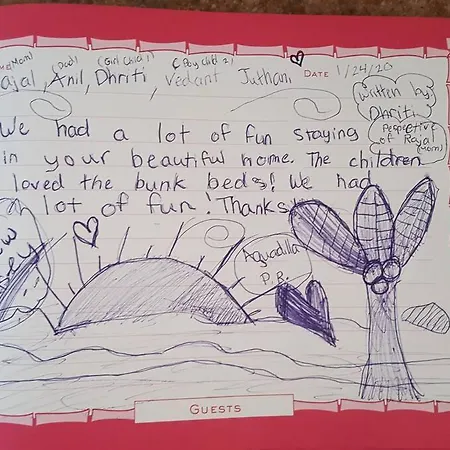 (Mom) (Dad) (Girl Child 1) (Boy child 2)
ajal, Anil, Dhriti, Vedant Juthani DATE 1/24/20
Written by:
Dhriti
Perspective
of Rajal
(Mom)
We had a lot of fun staying
in your beautiful home. The children
loved the bunk beds! We had
a lot of fun! Thanks!
Aguadilla
P.R.
GUESTS